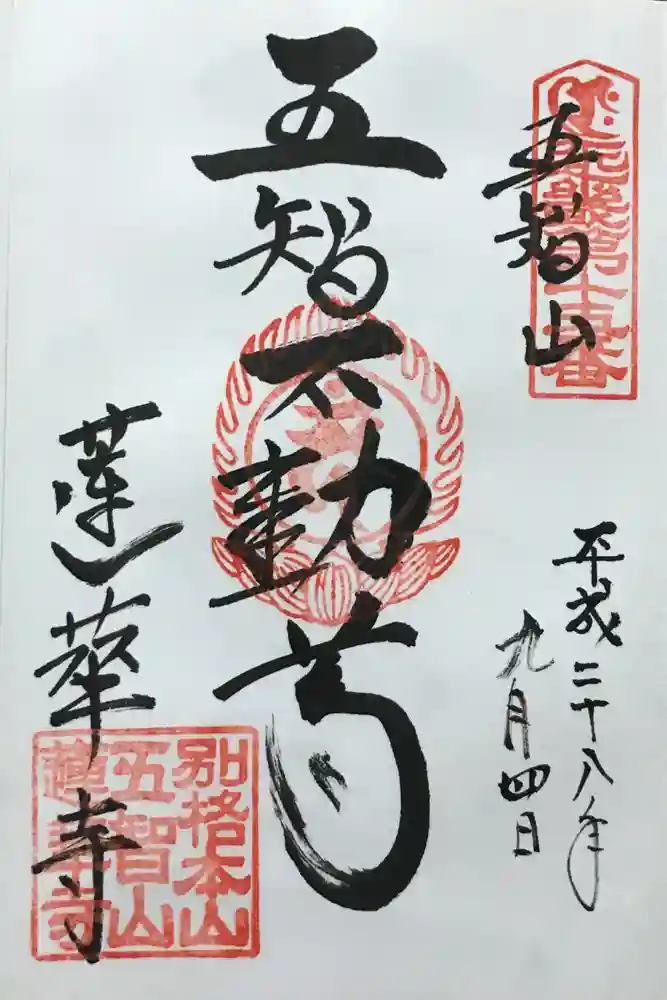 五智山
近畿第十五番
平成二十八年
九月四日
五智不動尊
蓮華寺
別格本山
五智山
蓮華寺